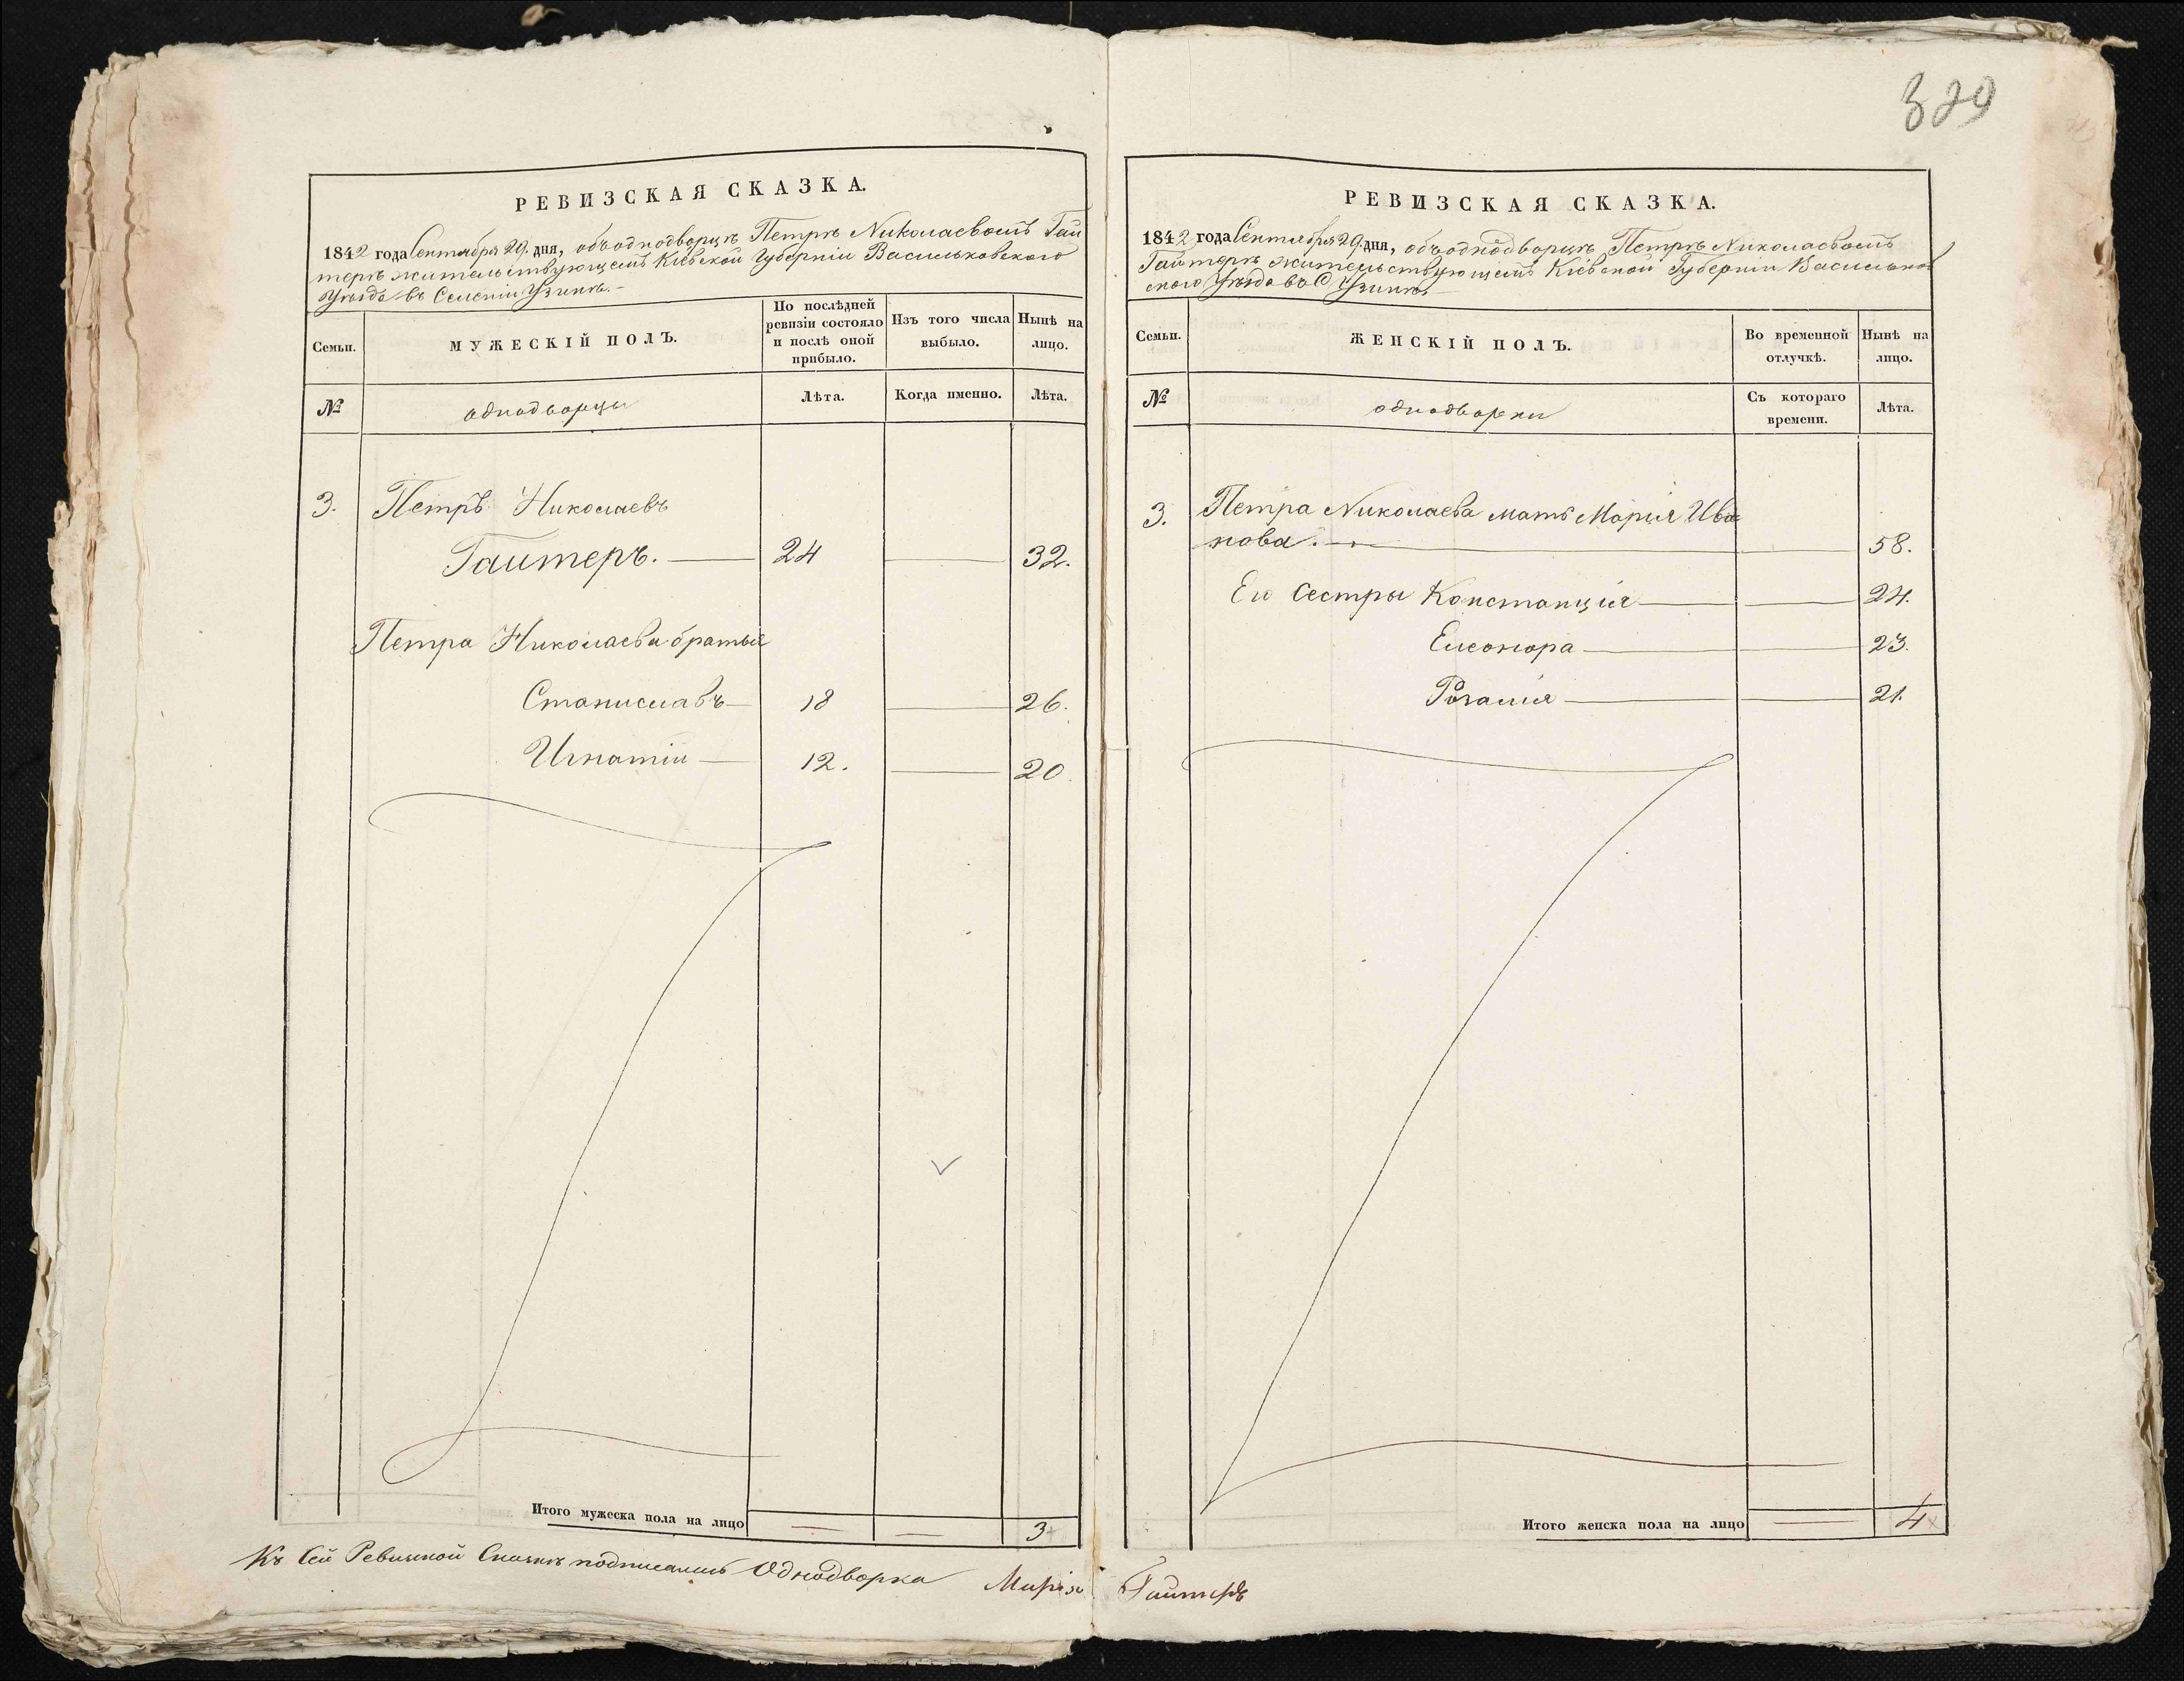 329
РЕВИЗСКАЯ СКАЗКА.
1842 года Сентября 29. дня, объ однодворцѣ Петрѣ Николаевомъ Гай
терѣ жительствующемъ Кіевской Губерніи Васильковского
Уѣзда въ Селеніи Узинѣ.-
Семьи.
МУЖЕСКІЙ ПОЛЪ.
По послѣдней
ревизіи состояло
и послѣ оной
прибыло.
Изъ того числа
выбыло.
Нынѣ на
лицо.
№
однодворцы
Лѣта.
Когда именно.
Лѣта.
3. Петръ Николаевъ
Гайтеръ. — 24 — 32.
Петра Николаева братья
Станиславъ — 18 — 26.
Игнатій — 12. — 20.
Итого мужеска пола на лицо — — 3
РЕВИЗСКАЯ СКАЗКА.
1842 года Сентября 29. дня, объ однодворцѣ Петрѣ Николаевомъ
Гайтерѣ жительствующемъ Кіевской Губерніи Васильков
ского Уѣзда въ С Узинѣ
Семьи.
ЖЕНСКІЙ ПОЛЪ.
Во временной
отлучкѣ.
Нынѣ на
лицо.
№
однодворки
Съ котораго
времени.
Лѣта.
3. Петра Николаева мать Марія Ива
нова. — — 58.
Его сестры Констанція — — 24.
Елеонора — — 23.
Розалія — — 21.
Итого женска пола на лицо — 4
Къ Сей Ревизкой Сказкѣ подписалась Однодворка Марія Гайтеръ